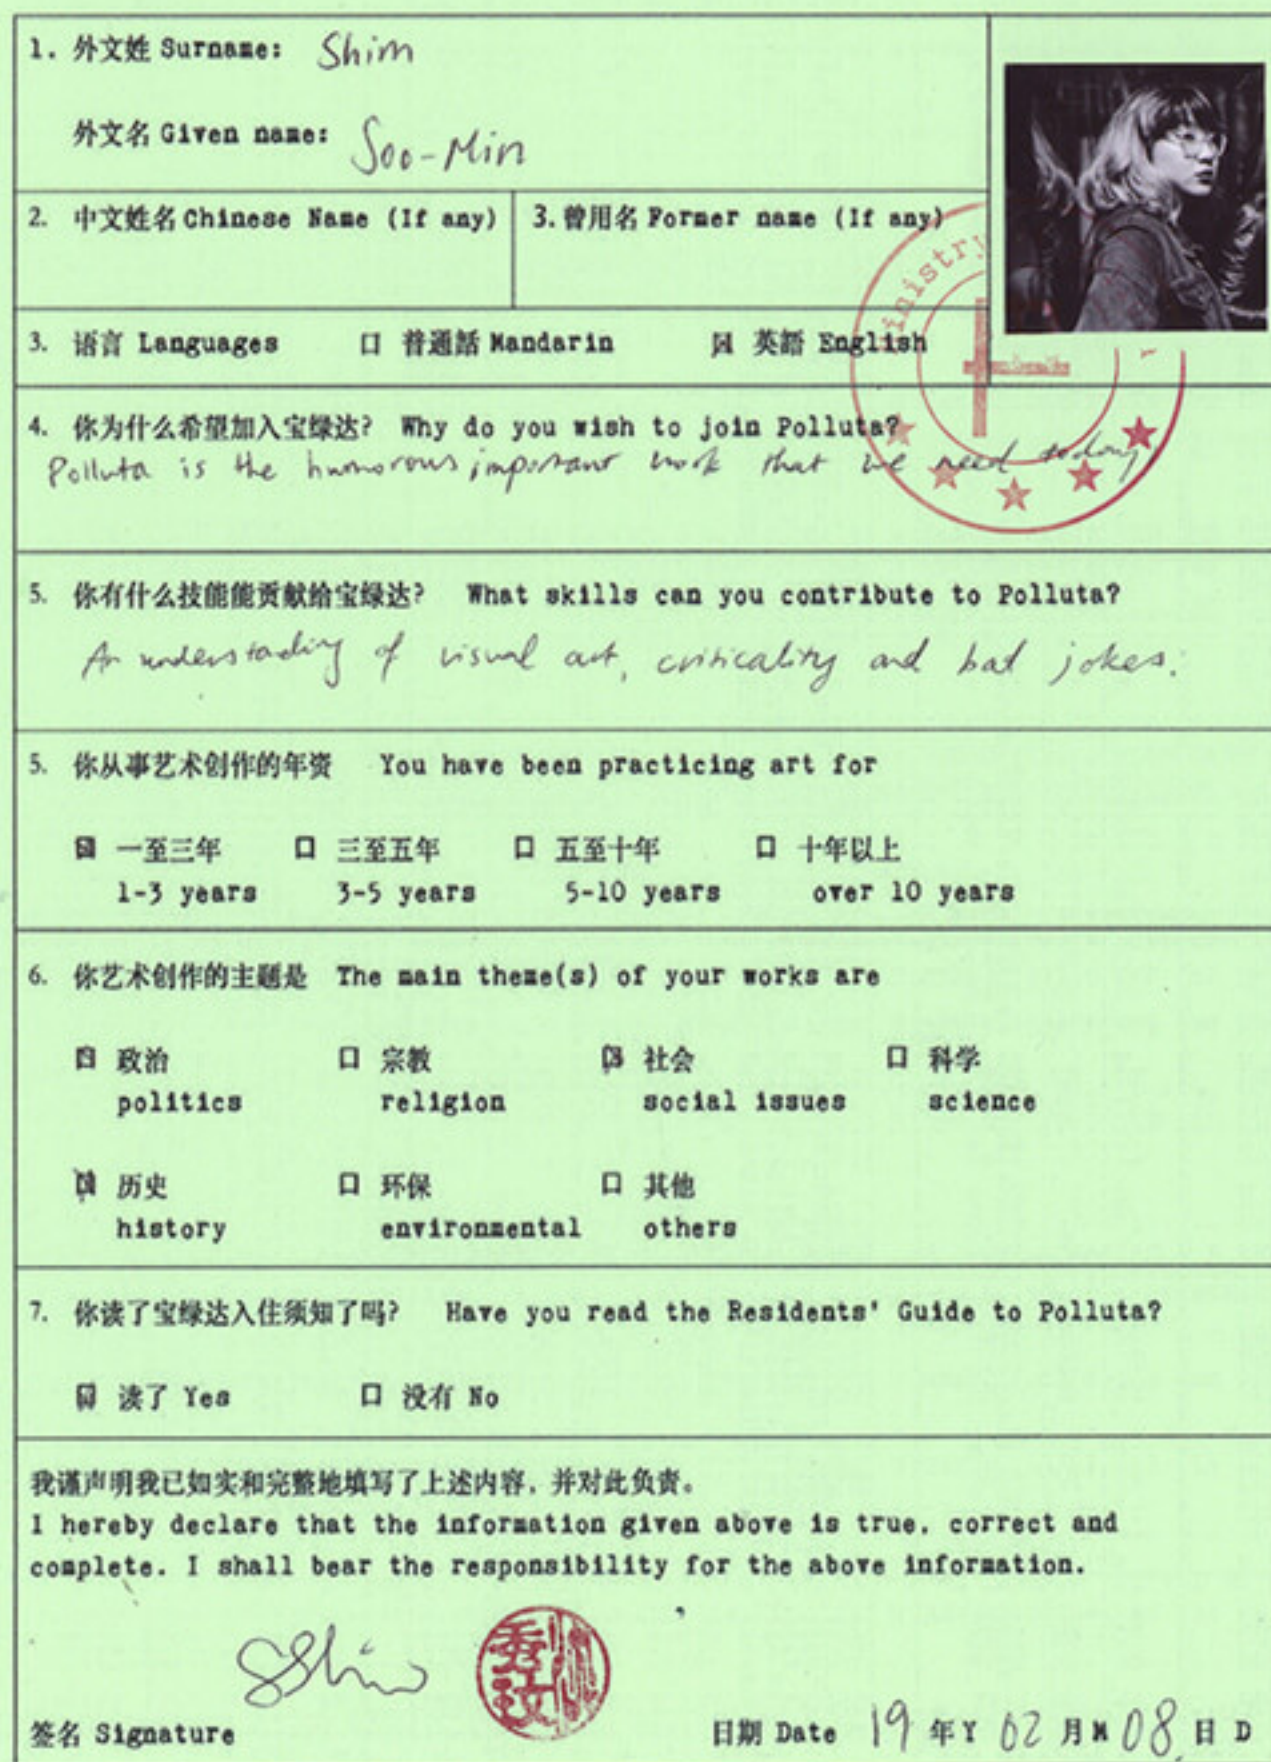 1. 外文姓 Surname: Shim
外文名 Given name: Soo-Min
2. 中文姓名 Chinese Name (If any)
3. 曾用名 Former name (If any)
inistry
3. 语言 Languages 口 普通話 Mandarin ☒ 英語 English
4. 你为什么希望加入宝绿达? Why do you wish to join Polluta?
Polluta is the humorous important work that we need today
5. 你有什么技能能贡献给宝绿达? What skills can you contribute to Polluta?
An understanding of visual art, criticality and bad jokes.
5. 你从事艺术创作的年资 You have been practicing art for
☒ 一至三年 口 三至五年 口 五至十年 口 十年以上
1-3 years 3-5 years 5-10 years over 10 years
6. 你艺术创作的主题是 The main theme(s) of your works are
☒ 政治 口 宗教 ☒ 社会 口 科学
politics religion social issues science
☒ 历史 口 环保 口 其他
history environmental others
7. 你读了宝绿达入住须知了吗? Have you read the Residents' Guide to Polluta?
☒ 读了 Yes 口 没有 No
我谨声明我已如实和完整地填写了上述内容，并对此负责。
I hereby declare that the information given above is true, correct and
complete. I shall bear the responsibility for the above information.
SShim
签名 Signature 日期 Date 19 年Y 02 月M 08 日 D